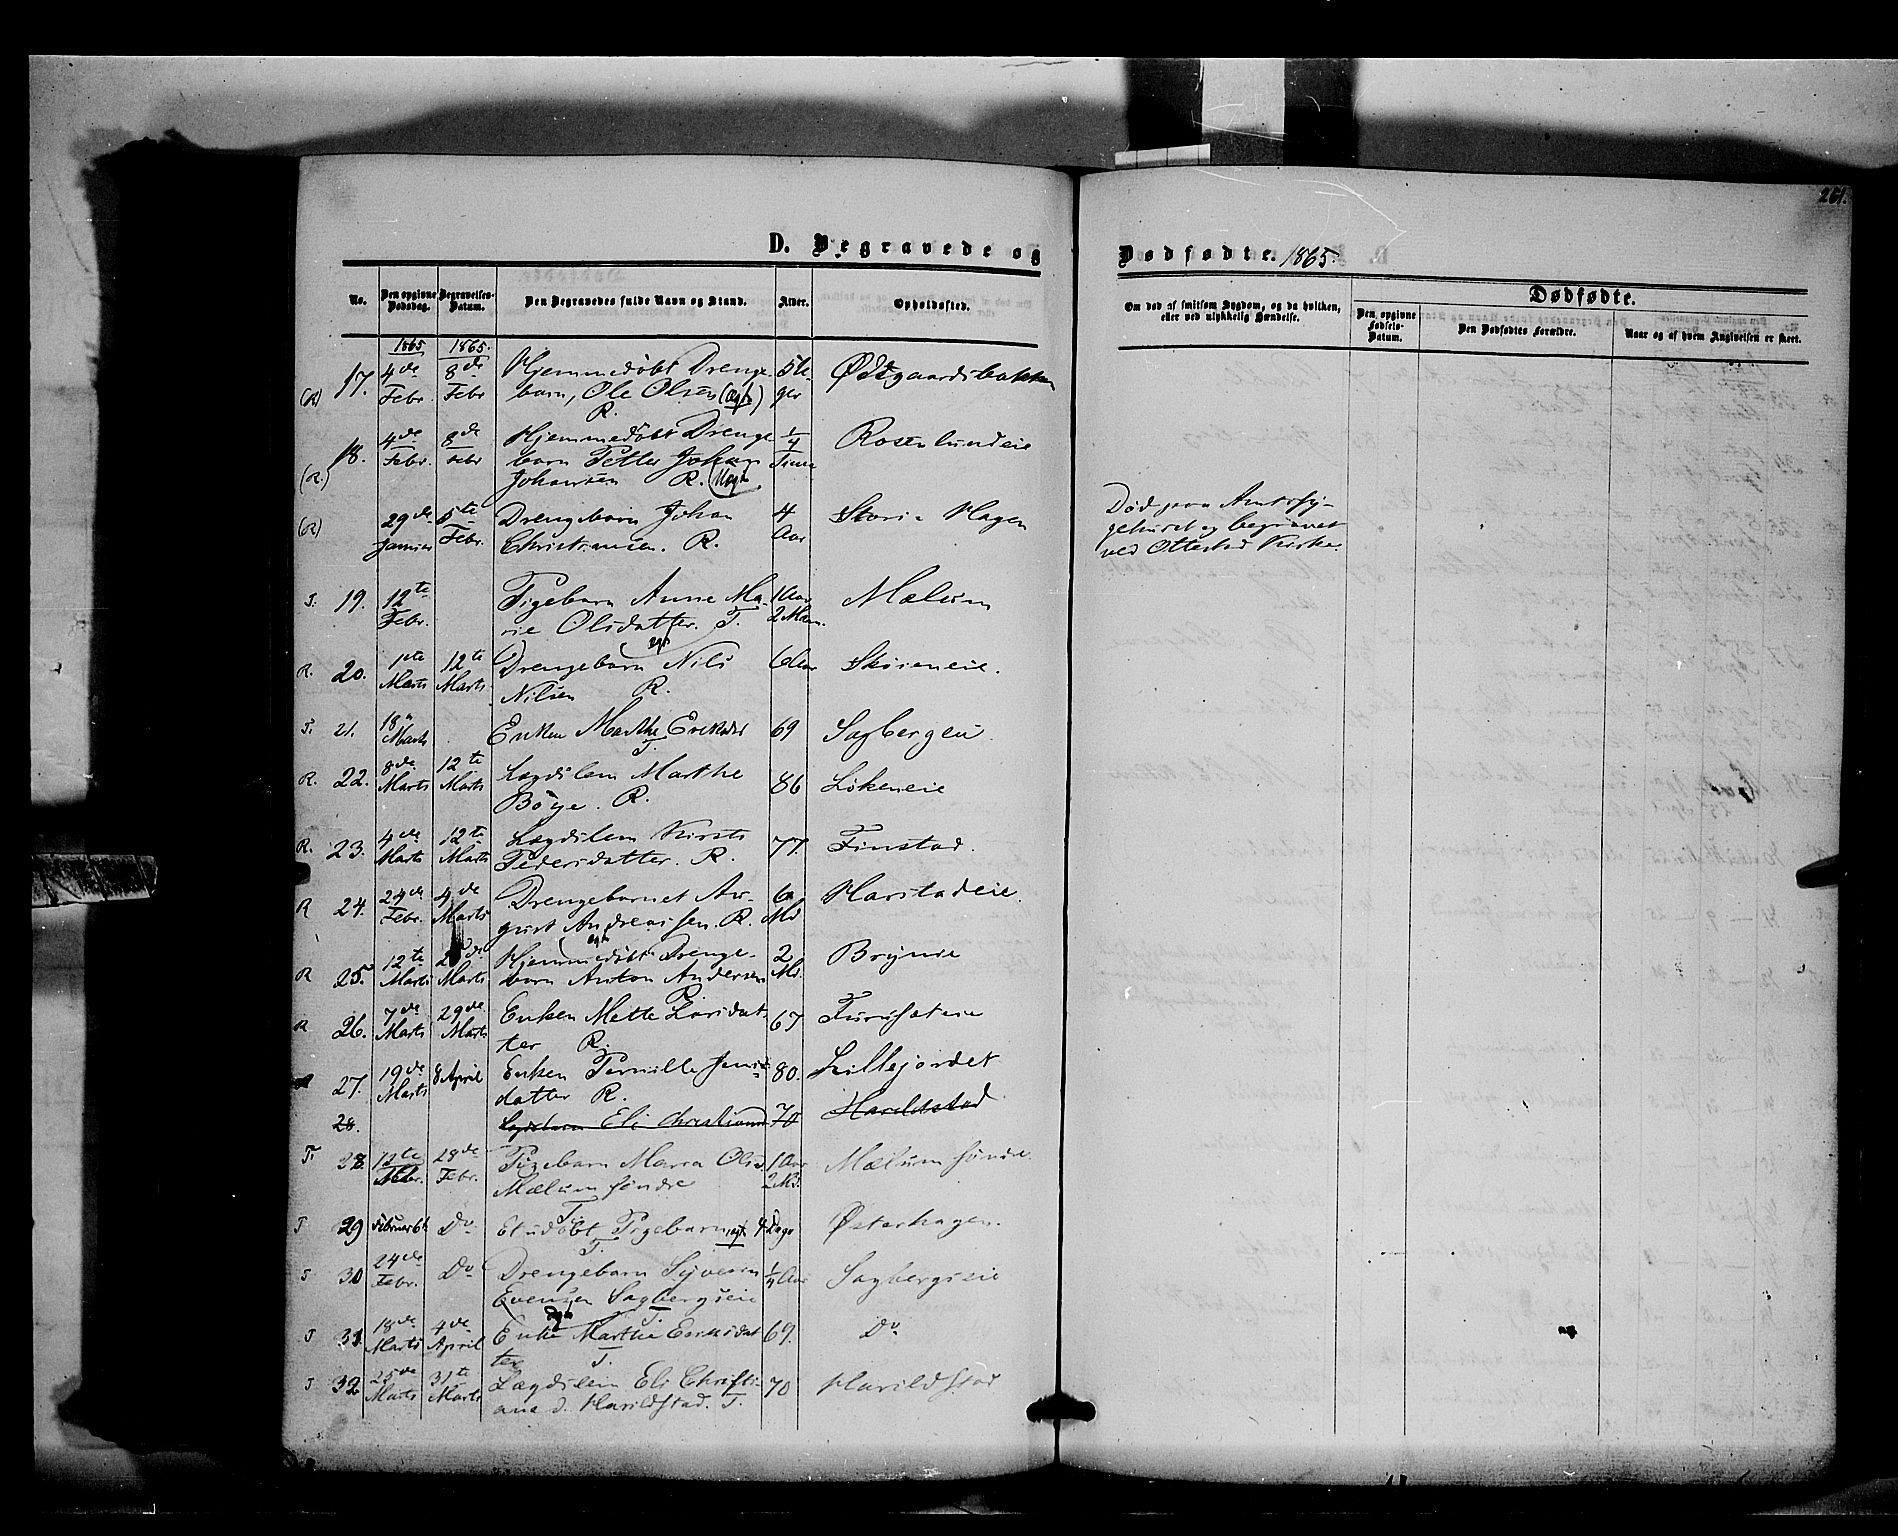 261.
D. Begravede og
Dødfødte. 1865.
No.
Den opgivne Dødsdag.
Begravelses-Datum.
Den Begravedes fulde Navn og Stand.
Alder.
Opholdssted.
Om død af smitsom Sygdom, og da hvilken, eller ved ulykkelig Hændelse.
Dødfødte.
Den opgivne Fødsels-Datum.
Den Dødfødtes Forældre.
Naar og af hvem Angivelsen er skeet.
1865 1865.
(R) 17. 4de Febr. 8de Febr Hjemmedøbt Drenge-
barn, Ole Olsen (ægte) R. Øddgaardsbakken
(R.) 18. 4de Febr. 8de Febr Hjemmedøbt Drenge
barn Petter Johan
Johansen R. 1/4 Time Rosenlundeie
(R) 29de 5te Febr. Drengebarn Johan
Christiansen. R. 4 Aar Hagen
Død paa Amtssy-
gehuset og begravet
ved Ottestad Kirke.
T. 19. 12te Febr. Pigebarn Anne Ma-
rie Olsdatter. T. 1 Aar 2 Maan. Mælum
R. 20. 1ste Marts 12te Marts Drengebarn Nils
Nilsen R. 6 Aar Skøieneie.
T. 21. 18 Marts Enken Marthe Eriksdat T. 69 Sagbergeu
R. 22. 8de Marts 12te Marts Lægdslem Marthe
Böye. R. 86 Lökeneie
R. 23. 4de Marts 12te Marts Lægdslem Kirsti
Pedersdatter. R. 77. Finstad.
R 24. 24de Febr. 4de Marts Drengebarnet Au-
gust Andreassen. R. 6 Md Harstadeie.
R 25. 12te Marts Marts Hjemmedøbt Drenge-
barn Anton Andersen R. 2 Md. Brynie
R 26. 7de Marts 29de Marts Enken Mette Larsdat-
ter R. 67 Furusæteie
27. 19de Marts 8 April Enken Pernille Jens-
datter R. 80. Lillejordet
28. Lægdslem Eli Christiane 70 Haraldstad
T. 28. 12te Febr. 28de Febr. Pigebarn Maria Ols
Mælum søndre T. 1 Aar 2 Md. Mælum søndre.
T 29 Februar 6te Do. Et udøbt Pigebarn, ægte T. 4 Dage Østerhagen.
T 30 24de Febr. Do. Drengebarn Syversen
Evensen Sagbergseie T. 1/4 Aar Sagbergseie
T 31 18de Marts 4de April Enke Marthe Eriksdat
ter T. 69. Do.
T 32 25de Marts 31te Marts Lægdslem Eli Christi-
ane d. Harildstad. T. 70 Harildstad